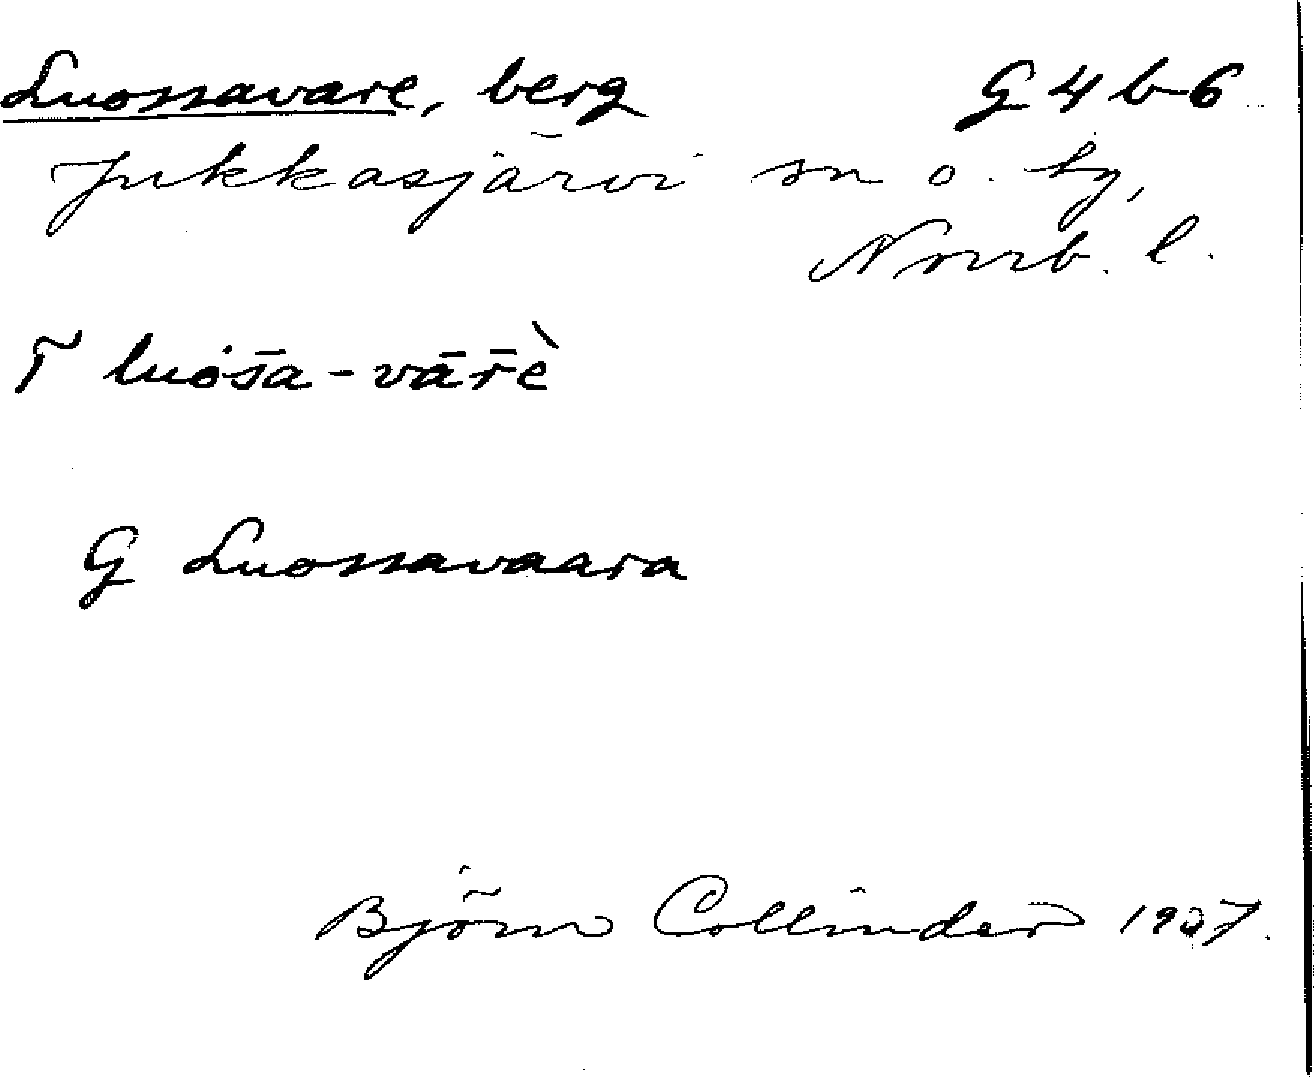 Luossavare, berg G 4 b 6
Jukkasjärvi sn o. hg,
Norrb. l.
T luȯs̄a-vār̄è
G Luossavaara
Björn Collinder 1937.